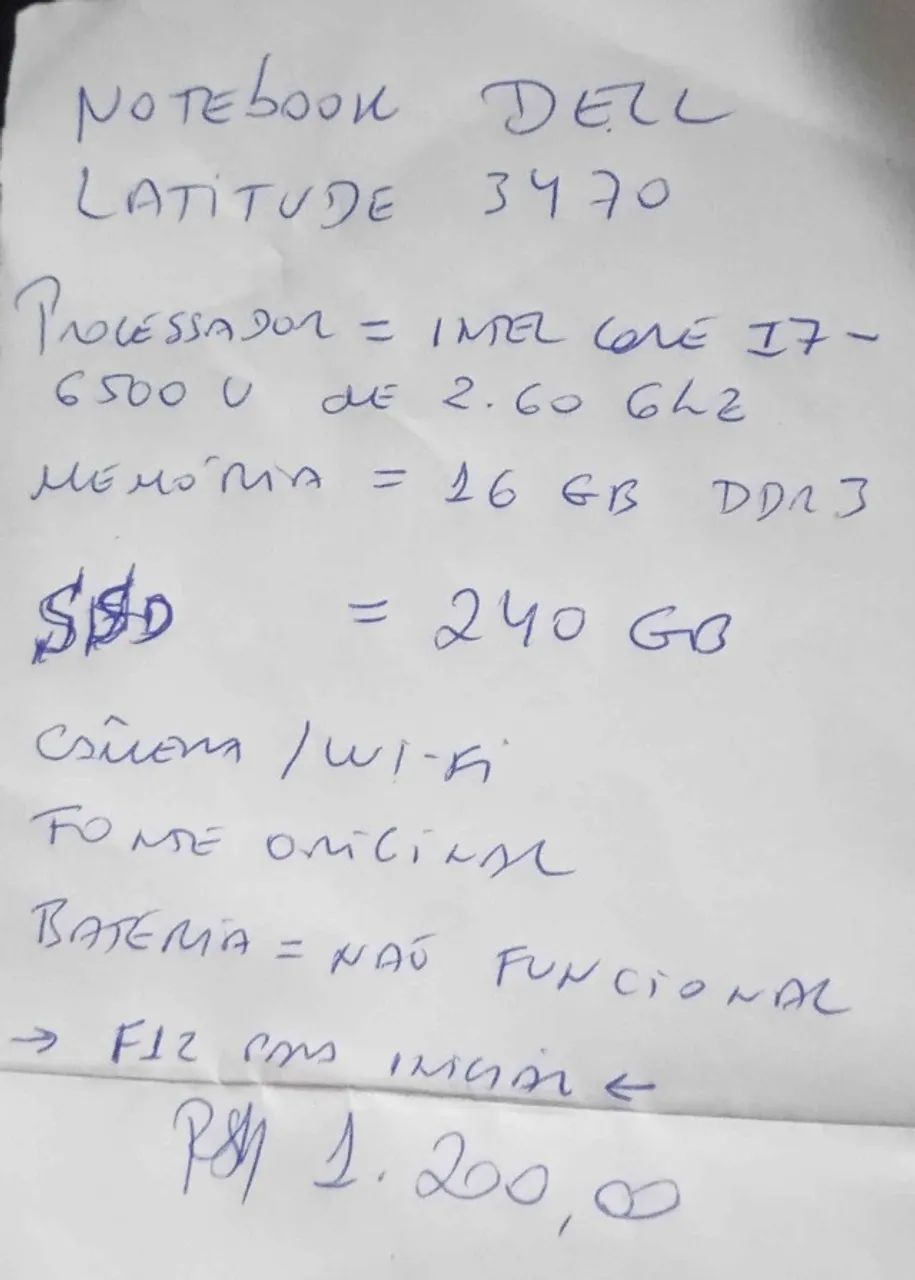 NOTEbOOK DELL
LATiTUDE 3470
PROCESSADOR = INTEL CORE I7-
6500 U dE 2.60 GhZ
MEMÓRIA = 16 GB DDR3
SSD = 240 GB
CÂMERA / Wi-Fi
FONTE ORiGiNAL
BATERiA = NÃO FUNCiONAL
→ F12 PARA INICIAR ←
R$ 1.200,00